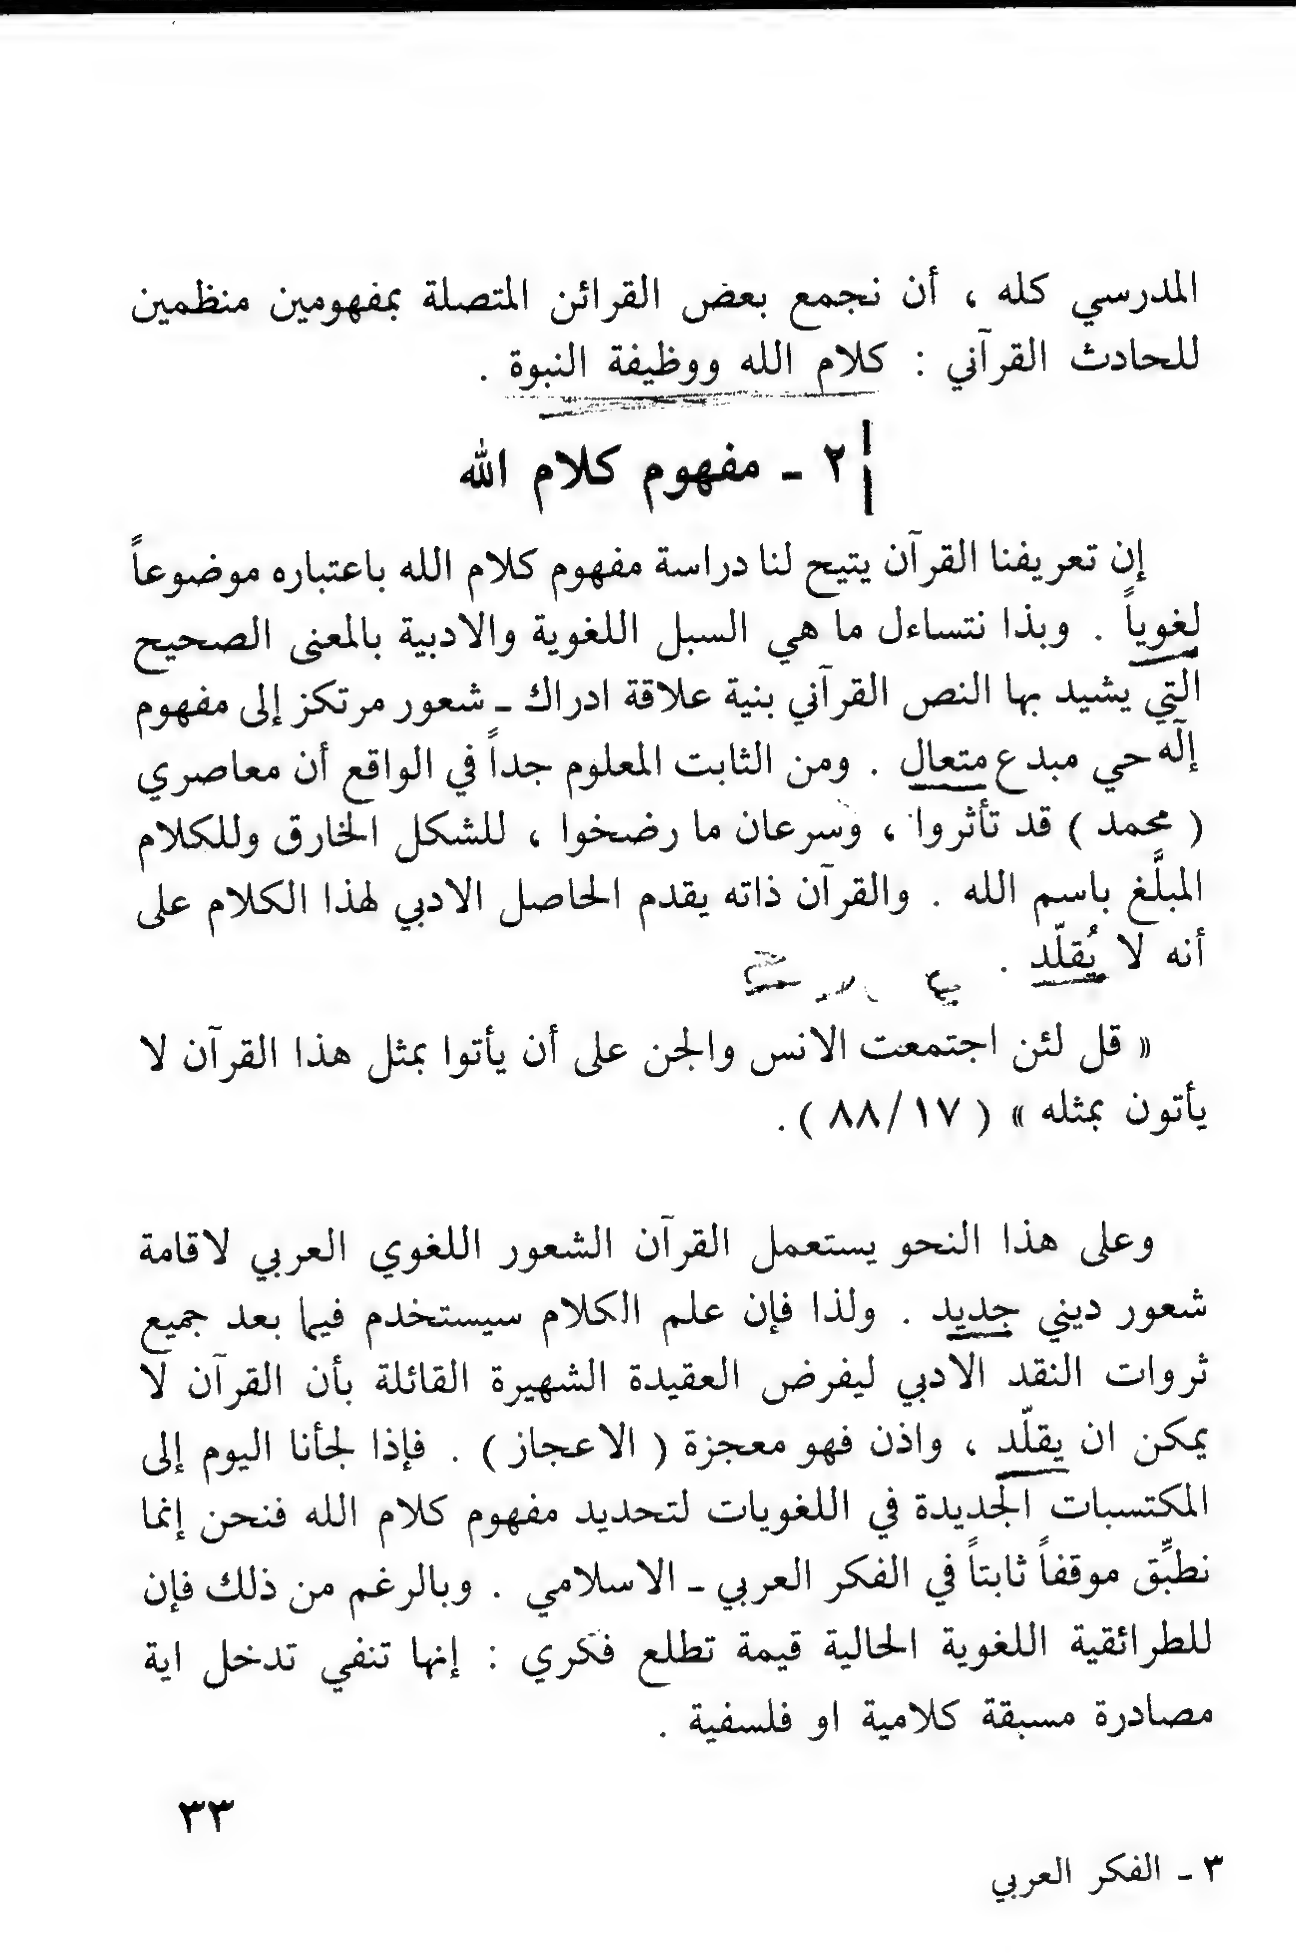 المدرسي كله ، أن نجمع بعض القرائن المتصلة بمفهومين منظمين
للحادث القرآني : كلام الله ووظيفة النبوة .
٢ ـ مفهوم كلام الله
إن تعريفنا القرآن يتيح لنا دراسة مفهوم كلام الله باعتباره موضوعاً
لغوياً . وبذا نتساءل ما هي السبل اللغوية والادبية بالمعنى الصحيح
التي يشيد بها النص القرآني بنية علاقة ادراك ـ شعور مرتكز إلى مفهوم
إلَه حي مبدع متعال . ومن الثابت المعلوم جداً في الواقع أن معاصري
( محمد ) قد تأثروا ، وسرعان ما رضخوا ، للشكل الخارق وللكلام
المبلَّغ باسم الله . والقرآن ذاته يقدم الحاصل الادبي لهذا الكلام على
أنه لا يُقلّد .
« قل لئن اجتمعت الانس والجن على أن يأتوا بمثل هذا القرآن لا
يأتون بمثله » ( ١٧/ ٨٨ ) .
وعلى هذا النحو يستعمل القرآن الشعور اللغوي العربي لاقامة
شعور ديني جديد . ولذا فإن علم الكلام سيستخدم فيما بعد جميع
ثروات النقد الادبي ليفرض العقيدة الشهيرة القائلة بأن القرآن لا
يمكن ان يقلّد ، واذن فهو معجزة ( الاعجاز ) . فإذا لجأنا اليوم إلى
المكتسبات الجديدة في اللغويات لتحديد مفهوم كلام الله فنحن إنما
نطبِّق موقفاً ثابتاً في الفكر العربي ـ الاسلامي . وبالرغم من ذلك فإن
للطرائقية اللغوية الحالية قيمة تطلع فكري : إنها تنفي تدخل اية
مصادرة مسبقة كلامية او فلسفية .
٣٣
٣ ـ الفكر العربي